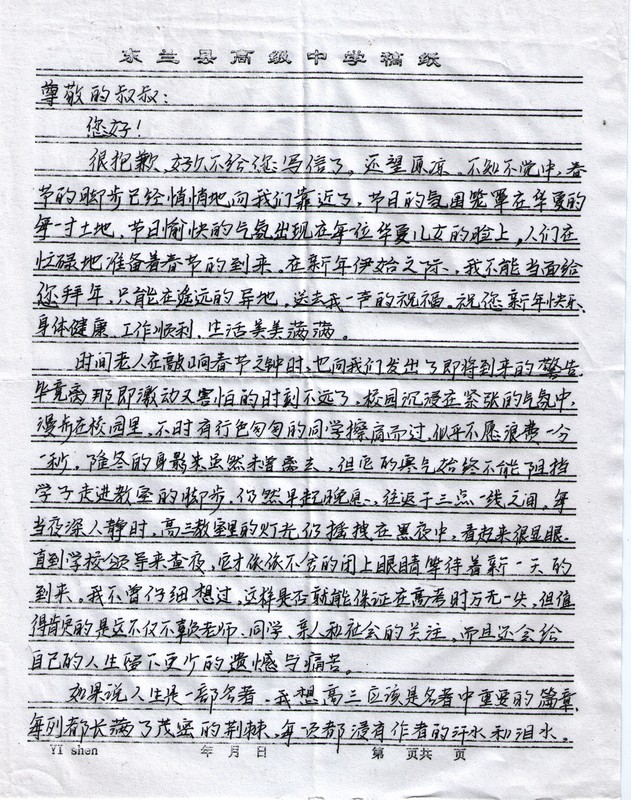 东兰县高级中学稿纸
尊敬的叔叔：
您好！
很抱歉，好久不给您写信了。还望原凉。不知不觉中，春
节的脚步已经悄悄地向我们靠近了，节日的氛围笼罩在华夏的
每一寸土地，节日愉快的气氛出现在每位华夏儿女的脸上，人们在
忙碌地准备着春节的到来。在新年伊始之际，我不能当面给
您拜年，只能在遥远的异地，送去我一声的祝福。祝您新年快乐、
身体健康、工作顺利、生活美美满满。
时间老人在敲响春节之钟时，也向我们发出了即将到来的警告。
毕竟离那即激动又害怕的时刻不远了，校园沉浸在紧张的气氛中，
漫步在校园里，不时有行色匆匆的同学擦肩而过，似乎不愿浪费一分
一秒。隆冬的身影未曾离去，但它的寒气始终不能阻挡
学子走进教室的脚步，仍然早起晚息，往返于三点一线之间。每
当夜深人静时，高三教室里的灯光仍摇拽在黑夜中，看起来很显眼。
直到学校领导来查夜，它才依依不舍的闭上眼睛等待着新一天的
到来。我不曾仔细想过，这样是否就能保证在高考时万无一失，但值
得肯定的是这不仅不辜负老师、同学、亲人和社会的关注，而且还会给
自己的人生留下更少的遗憾与痛苦。
如果说人生是一部名著，我想高三应该是名著中重要的篇章，
每列都长满了茂密的荆棘，每页都浸有作者的汗水和泪水。
YI shen 年 月 日 第 页共 页